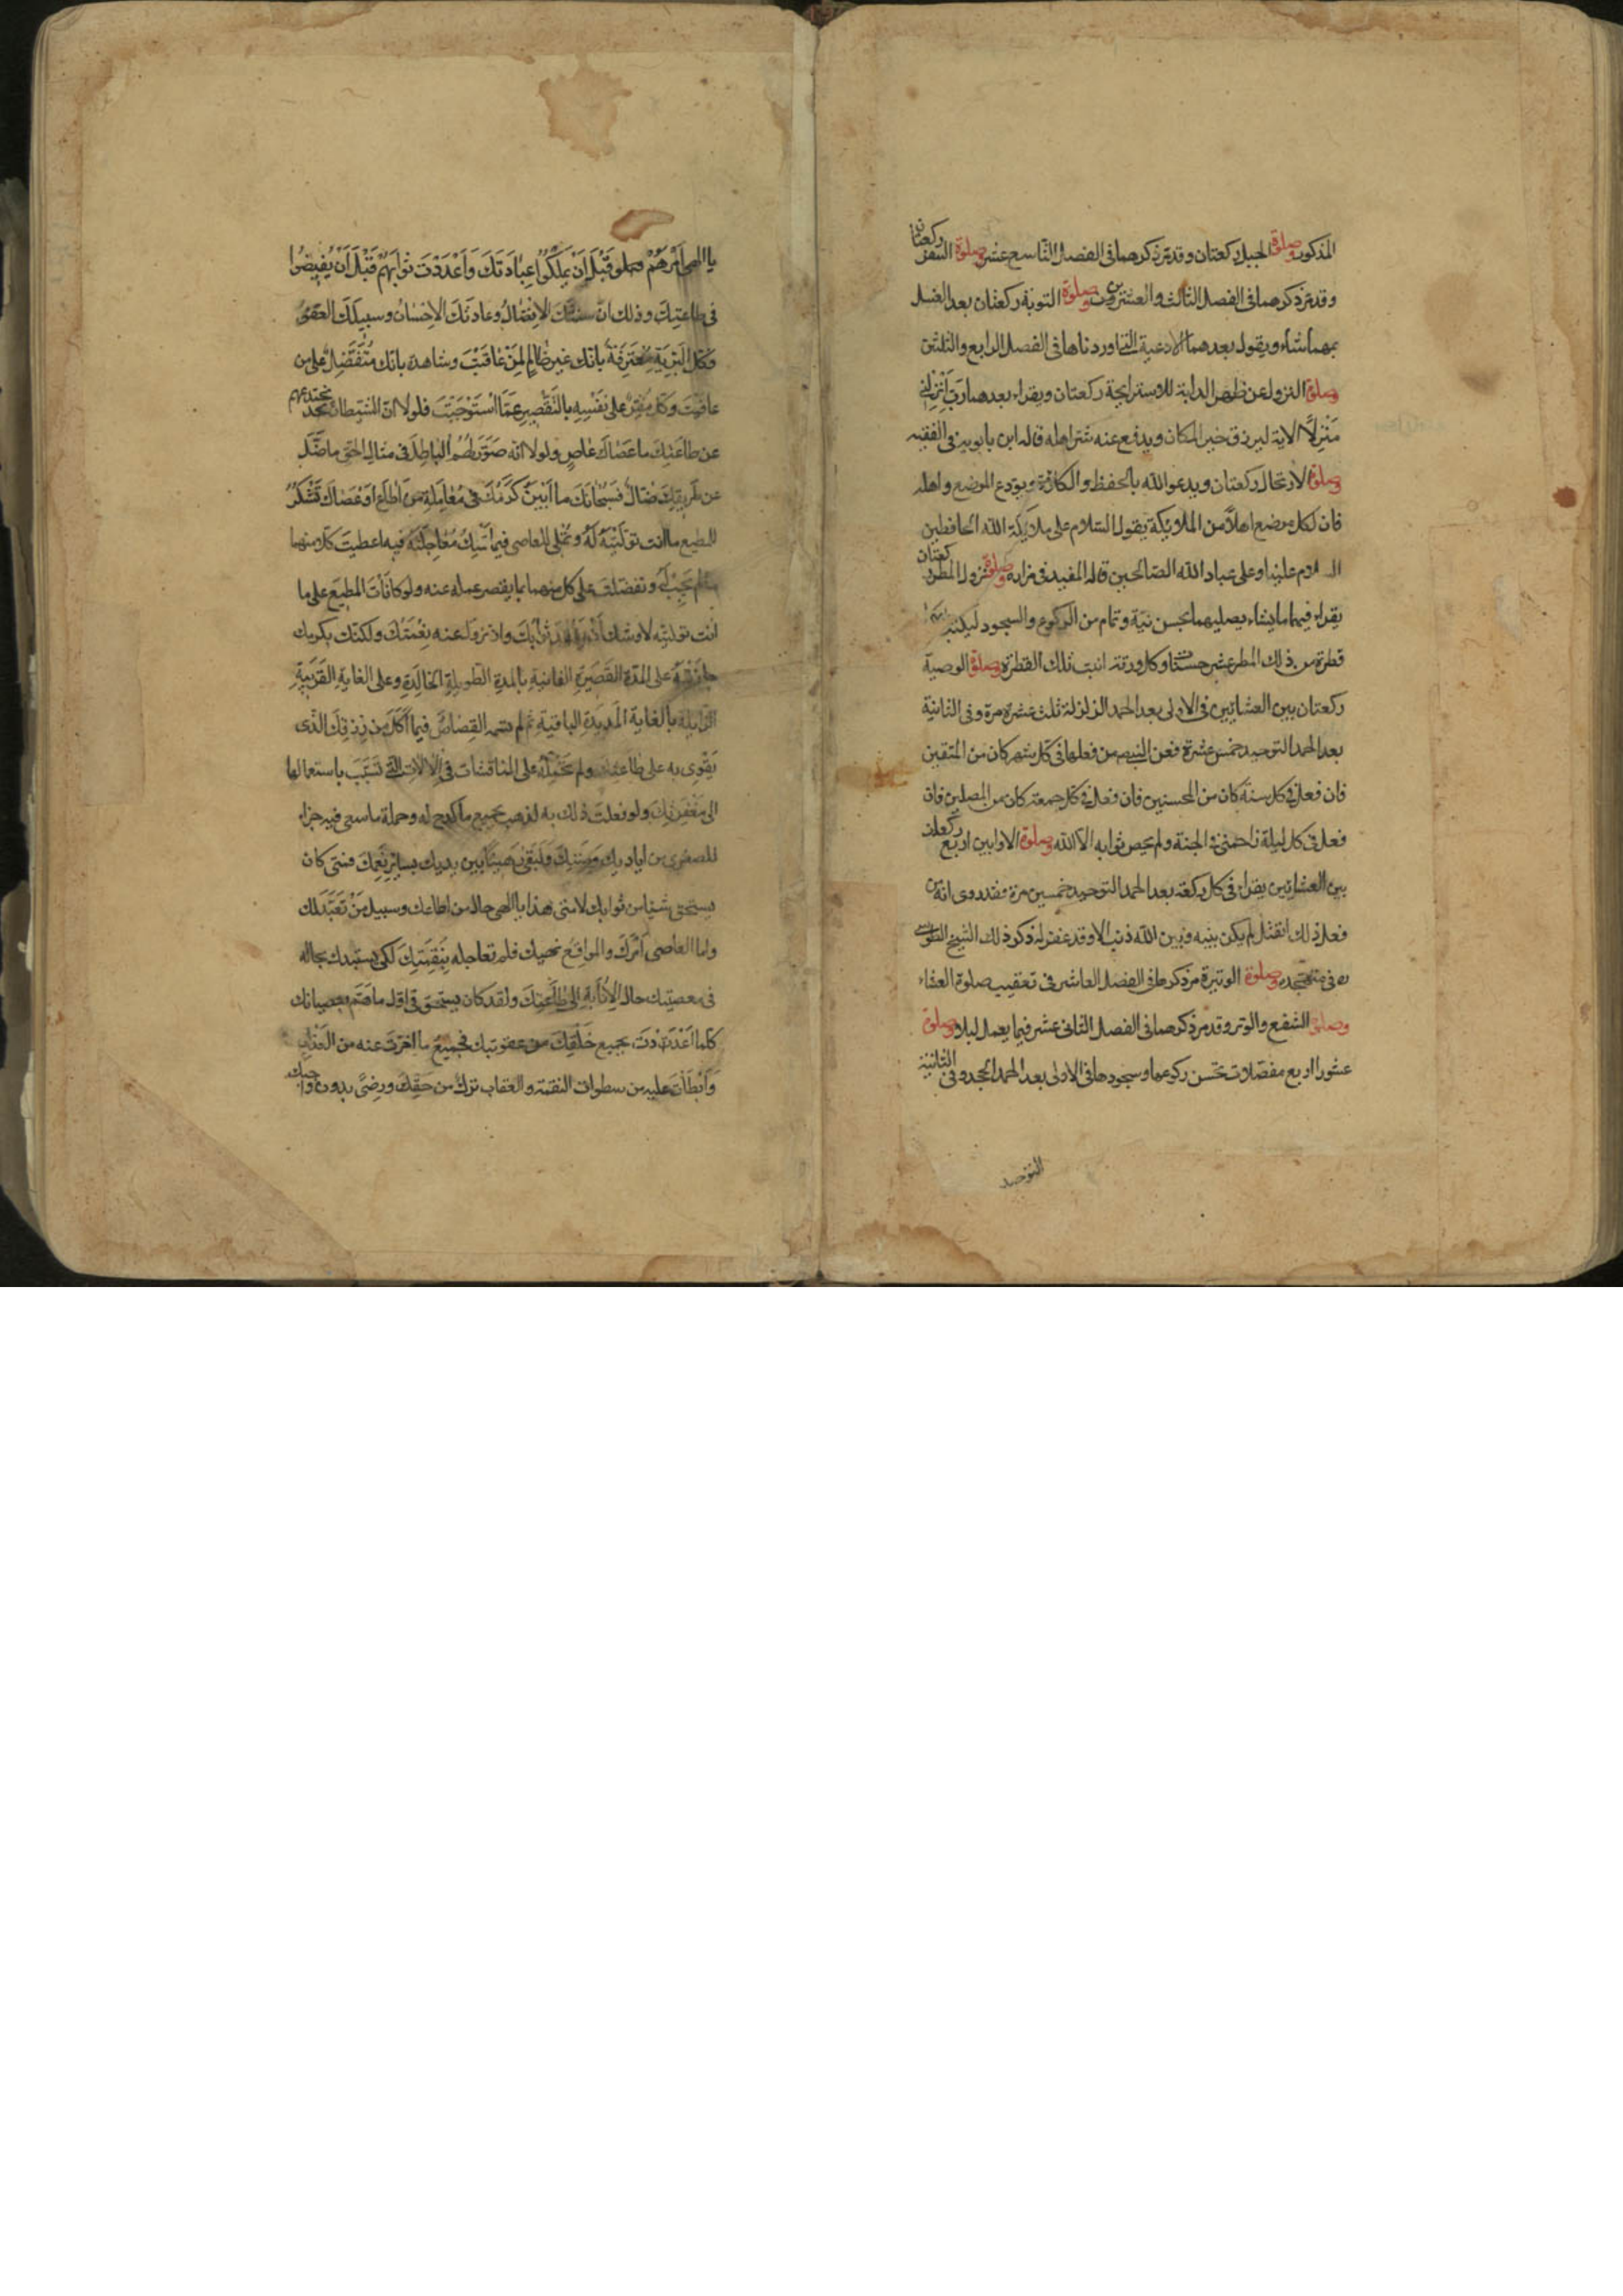 المذكور وصلوة الحبل ركعتان وقد مر ذكرهما فى الفصل التاسع عشر وصلوة السفر ركعتان
وقد مر ذكرهما فى الفصل الثالث والعشرين وصلوة التوبة ركعتان بعد الغسل
بمهما شاء ويقول بعدهما الادعية التى اوردناها فى الفصل الرابع والثلثين
وصلوة النزول عن ظهر الدابة للاستراحة ركعتان ويقراء بعدهما رَبِّ أَنْزِلْنِي
مُنْزَلًا الاية ليرزق خير المكان ويدفع عنه شر اهله قاله ابن بابويه فى الفقيه
وصلوة الارتحال ركعتان ويدعو الله بالحفظ والكلاءة ويودع الموضع واهله
فان لكل موضع اهلاً من الملائكة يقول السلام على ملائكة الله الحافظين
السلام علينا وعلى عباد الله الصالحين قاله المفيد فى مزاره وصلوة نزول المطر ركعتان
يقراء فيهما ما يشاء يصليهما بحسن نية وتمام من الركوع والسجود ليكتب له بكل
قطرة من ذلك المطر عشر حسنات وكل ورقة انبت تلك القطرة وصلوة الوصية
ركعتان بين العشائين فى الاولى بعد الحمد الزلزلة ثلث عشرة مرة وفى الثانية
بعد الحمد التوحيد خمس عشرة فعن النبى ص من فعلها فى كل شهر كان من المتقين
فان فعل فى كل سنة كان من المحسنين فان فعل فى كل جمعة كان من المصلين فان
فعل فى كل ليلة زاحمنى فى الجنة ولم يحص ثوابه الا الله وصلوة الاوابين اربع ركعات
بين العشائين يقراء فى كل ركعة بعد الحمد التوحيد خمسين مرة فقد روى انه من
فعل ذلك انفتل لم يكن بينه وبين الله ذنب الا وقد غفر له ذكر ذلك الشيخ الطوسى
ره فى متهجده وصلوة الوتيرة مر ذكرها فى الفصل العاشر فى تعقيب صلوة العشاء
وصلوة الشفع والوتر وقد مر ذكرهما فى الفصل الثانى عشر فيما يعمل ليلا وصلوة
عشورا اربع مفصلات تحسن ركوعها وسجودها فى الاولى بعد الحمد الجحد وفى الثانية
التوحيد
يا الهى امْرَهُمْ قَبْلَ اَنْ يَمْلِكُوا عِبَادَتَكَ وَاَعْدَدْتَ ثَوَابَهُمْ قَبْلَ اَنْ يُفِيضُوا
فى طاعتك وذلك ان سنتك الافضال وعادتك الاحسان وسبيلك العفو
فكل البرية معترفة بانك غير ظالم لمن عاقبت وشاهدة بانك متفضل على من
عافيت وكل مقر على نفسه بالتقصير عما استوجبت فلولا ان الشيطان يختدعهم
عن طاعتك ما عصاك عاص ولولا انه صور لهم الباطل فى مثال الحق ما ضل
عن طريقك ضال فسبحانك ما ابين كرمك فى معاملة من اطاعك او عصاك تشكر
للمطيع ما انت توليته له وتملى للعاصى فيما تملك معاجلته فيه اعطيت كلا منهما
ما لم يجب له وتفضلت على كل منهما بما يقصر عمله عنه ولو كافأت المطيع على ما
انت توليته لاوشك ان يفقد ثوابك وان تزول عنه نعمتك ولكنك بكرمك
جازيته على المدة القصيرة الفانية بالمدة الطويلة الخالدة وعلى الغاية القريبة
الزايلة بالغاية المديدة الباقية ثم لم تسمه القصاص فيما اكل من رزقك الذى
يقوى به على طاعتك ولم تحمله على المناقشات فى الالات التى تسبب باستعمالها
الى مغفرتك ولو فعلت ذلك به لذهب بجميع ما كدح له وجملة ما سعى فيه جزاء
للصغرى من اياديك ومننك ولبقى رهينا بين يديك بساير نعمك فمتى كان
يستحق شيئا من ثوابك لا متى هذا يا الهى حال من اطاعك وسبيل من تعبد لك
واما العاصى امرك والمواقع نهيك فلم تعاجله بنقمتك لكى يستبدل بحاله
فى معصيتك حال الانابة الى طاعتك ولقد كان يستحق فى اول ما هم بعصيانك
كلما اعددت لجميع خلقك من عقوبتك فجميع ما اخرت عنه من العذاب
وابطأت عليه من سطوات النقمة والعقاب ترك من حقك ورضى بدون واجبك